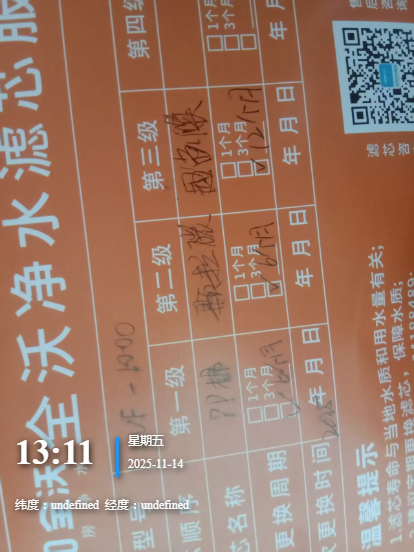 全沃净水滤芯服
型号
UF-1000
顺序
第一级
第二级
第三级
第四级
芯名称
PP棉
更换周期
□1个月
□3个月
6个月
□1个月
□3个月
6个月
□1个月
□3个月
12个月
□1个月
□3个月
更换时间
年 月 日
年 月 日
年 月 日
年 月
温馨提示
1.滤芯寿命与当地水质和用水量有关;
保障水质;
滤芯咨
13:11
星期五
2025-11-14
纬度:undefined 经度:undefined